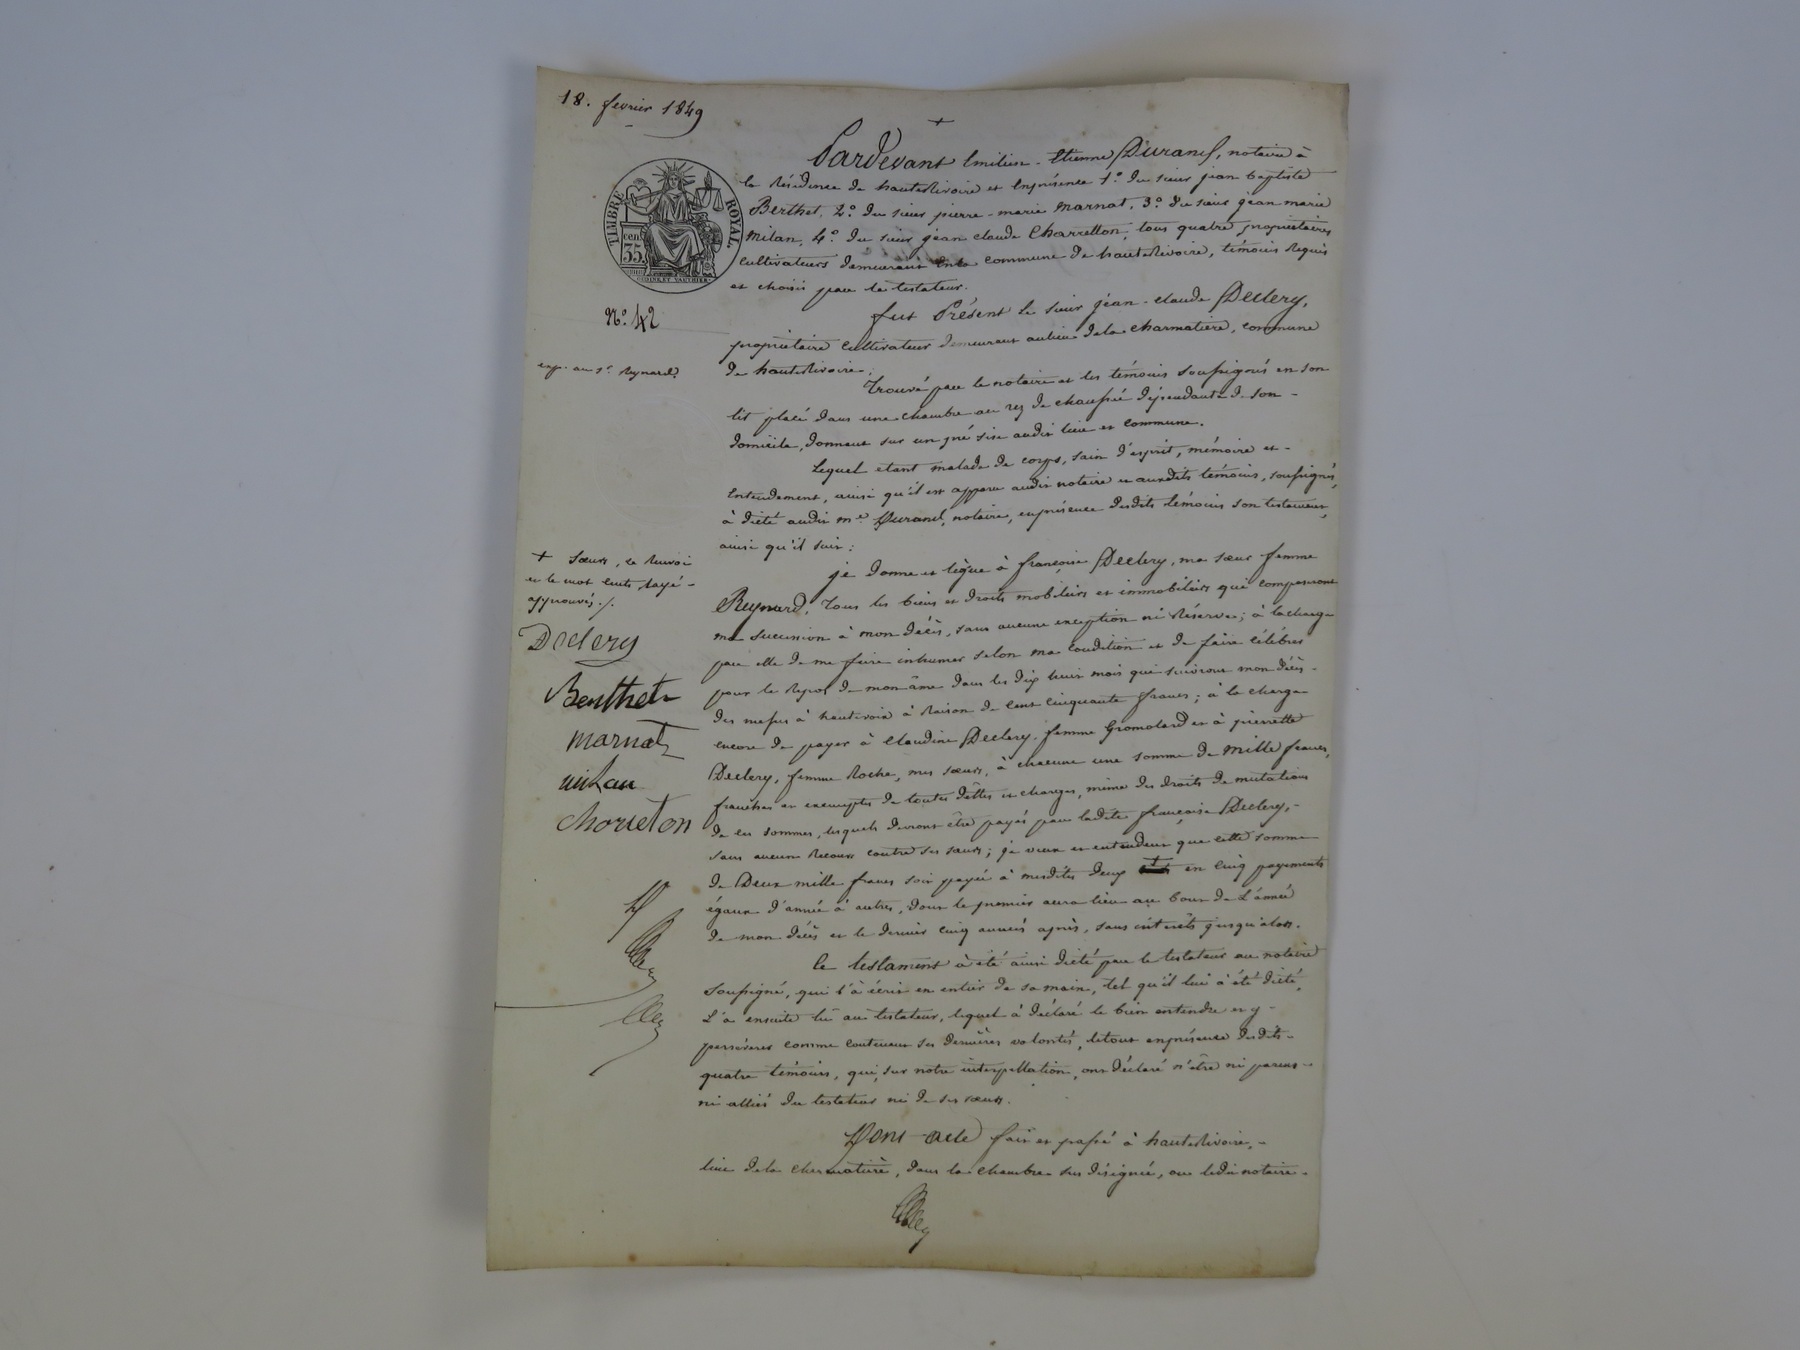 18. fevrier 1849
+
Pardevant Emilien-Etienne Durand, notaire à
la Résidence de hauteRivoire et Enprésence 1.° du sieur jean baptiste
Berthet, 2.° du sieur pierre-marie Marnat, 3.° du sieur jean marie
Milan, 4.° du sieur jean claude Charretton, tous quatre propriétaires
cultivateurs demeurant Enla commune de hauteRivoire, témoins Requis
et choisis par le testateur.
TIMBRE ROYAL.
cen.
35.
N.° 42
fut Présent le sieur jean-claude Declery,
propriétaire cultivateur demeurant aulieu dela charmatière, commune
de hauteRivoire.
exp. au s.r Reynard.
Trouvé par le notaire et les témoins soussignés en son
lit placé dans une chambre au rez de chaussée dépendante de son -
domicile, donnant sur un pré sise audit lieu et commune.
Lequel etant malade de corps, sain d'esprit, mémoire et -
Entendement, ainsi qu'il est apparu audit notaire et auxdits témoins, soussignés,
à dicté audit m.e Durand, notaire, enprésence desdits témoins son testament,
ainsi qu'il suit :
je donne et lègue à françoise Declery, ma sœur femme
Reynard, Tous les biens et droits mobiliers et immobiliers qui composeront
ma succession à mon décès, sans aucune exception ni Réserve; à lacharge
par elle de me faire inhumer selon ma condition et de faire célébrer
pour le Repos de mon âme dans les dix huit mois qui suivront mon décès -
des messes à hauterivoire à Raison de Cent Cinquante francs; à la charge
encore de payer à Claudine Declery, femme Gromolard et à pierrette
Declery, femme Roche, mes sœurs, à chacune une somme de Mille francs,
franches et exemptes de toutes dêttes et charges, même des droits de mutations
de ces sommes, lesquels devront être payés par ladite françoise Declery, -
sans aucun Recours contre ses sœurs; je veux et entends que cette somme
de Deux mille francs soit payée à mesdites deux + en Cinq payements
égaux d'année à autres, dont le premier aura lieu au bout de L'année
de mon décès et le dernier cinq années après, sans intérêts jusqu'alors.
+ sœurs, ce Renvoi
et le mot Cents rayé -
approuvés ./.
Declery
Berthet
Marnat
milan
Chorieton
Ce testament à été ainsi dicté par le testateur au notaire
soussigné, qui l'à écrit en entier de sa main, tel qu'il lui à été dicté,
L'a ensuite lû au testateur, lequel à déclaré le bien entendre et y -
persévérer comme contenant ses dernières volontés, letout enprésence desdits -
quatre témoins, qui, sur notre interpellation, ont déclaré n'être ni parens -
ni alliés du testateur ni de ses sœurs.
Dont acte fait et passé à hauteRivoire, -
lieu dela charmatière, dans la chambre sus désignée, ou ledit notaire -